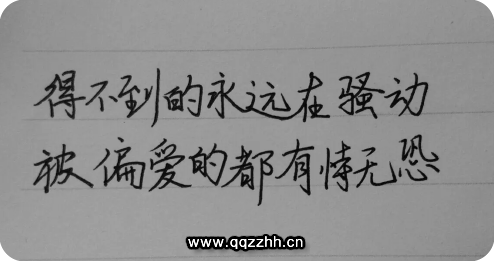 得不到的永远在骚动
被偏爱的都有恃无恐
www.qqzzhh.cn